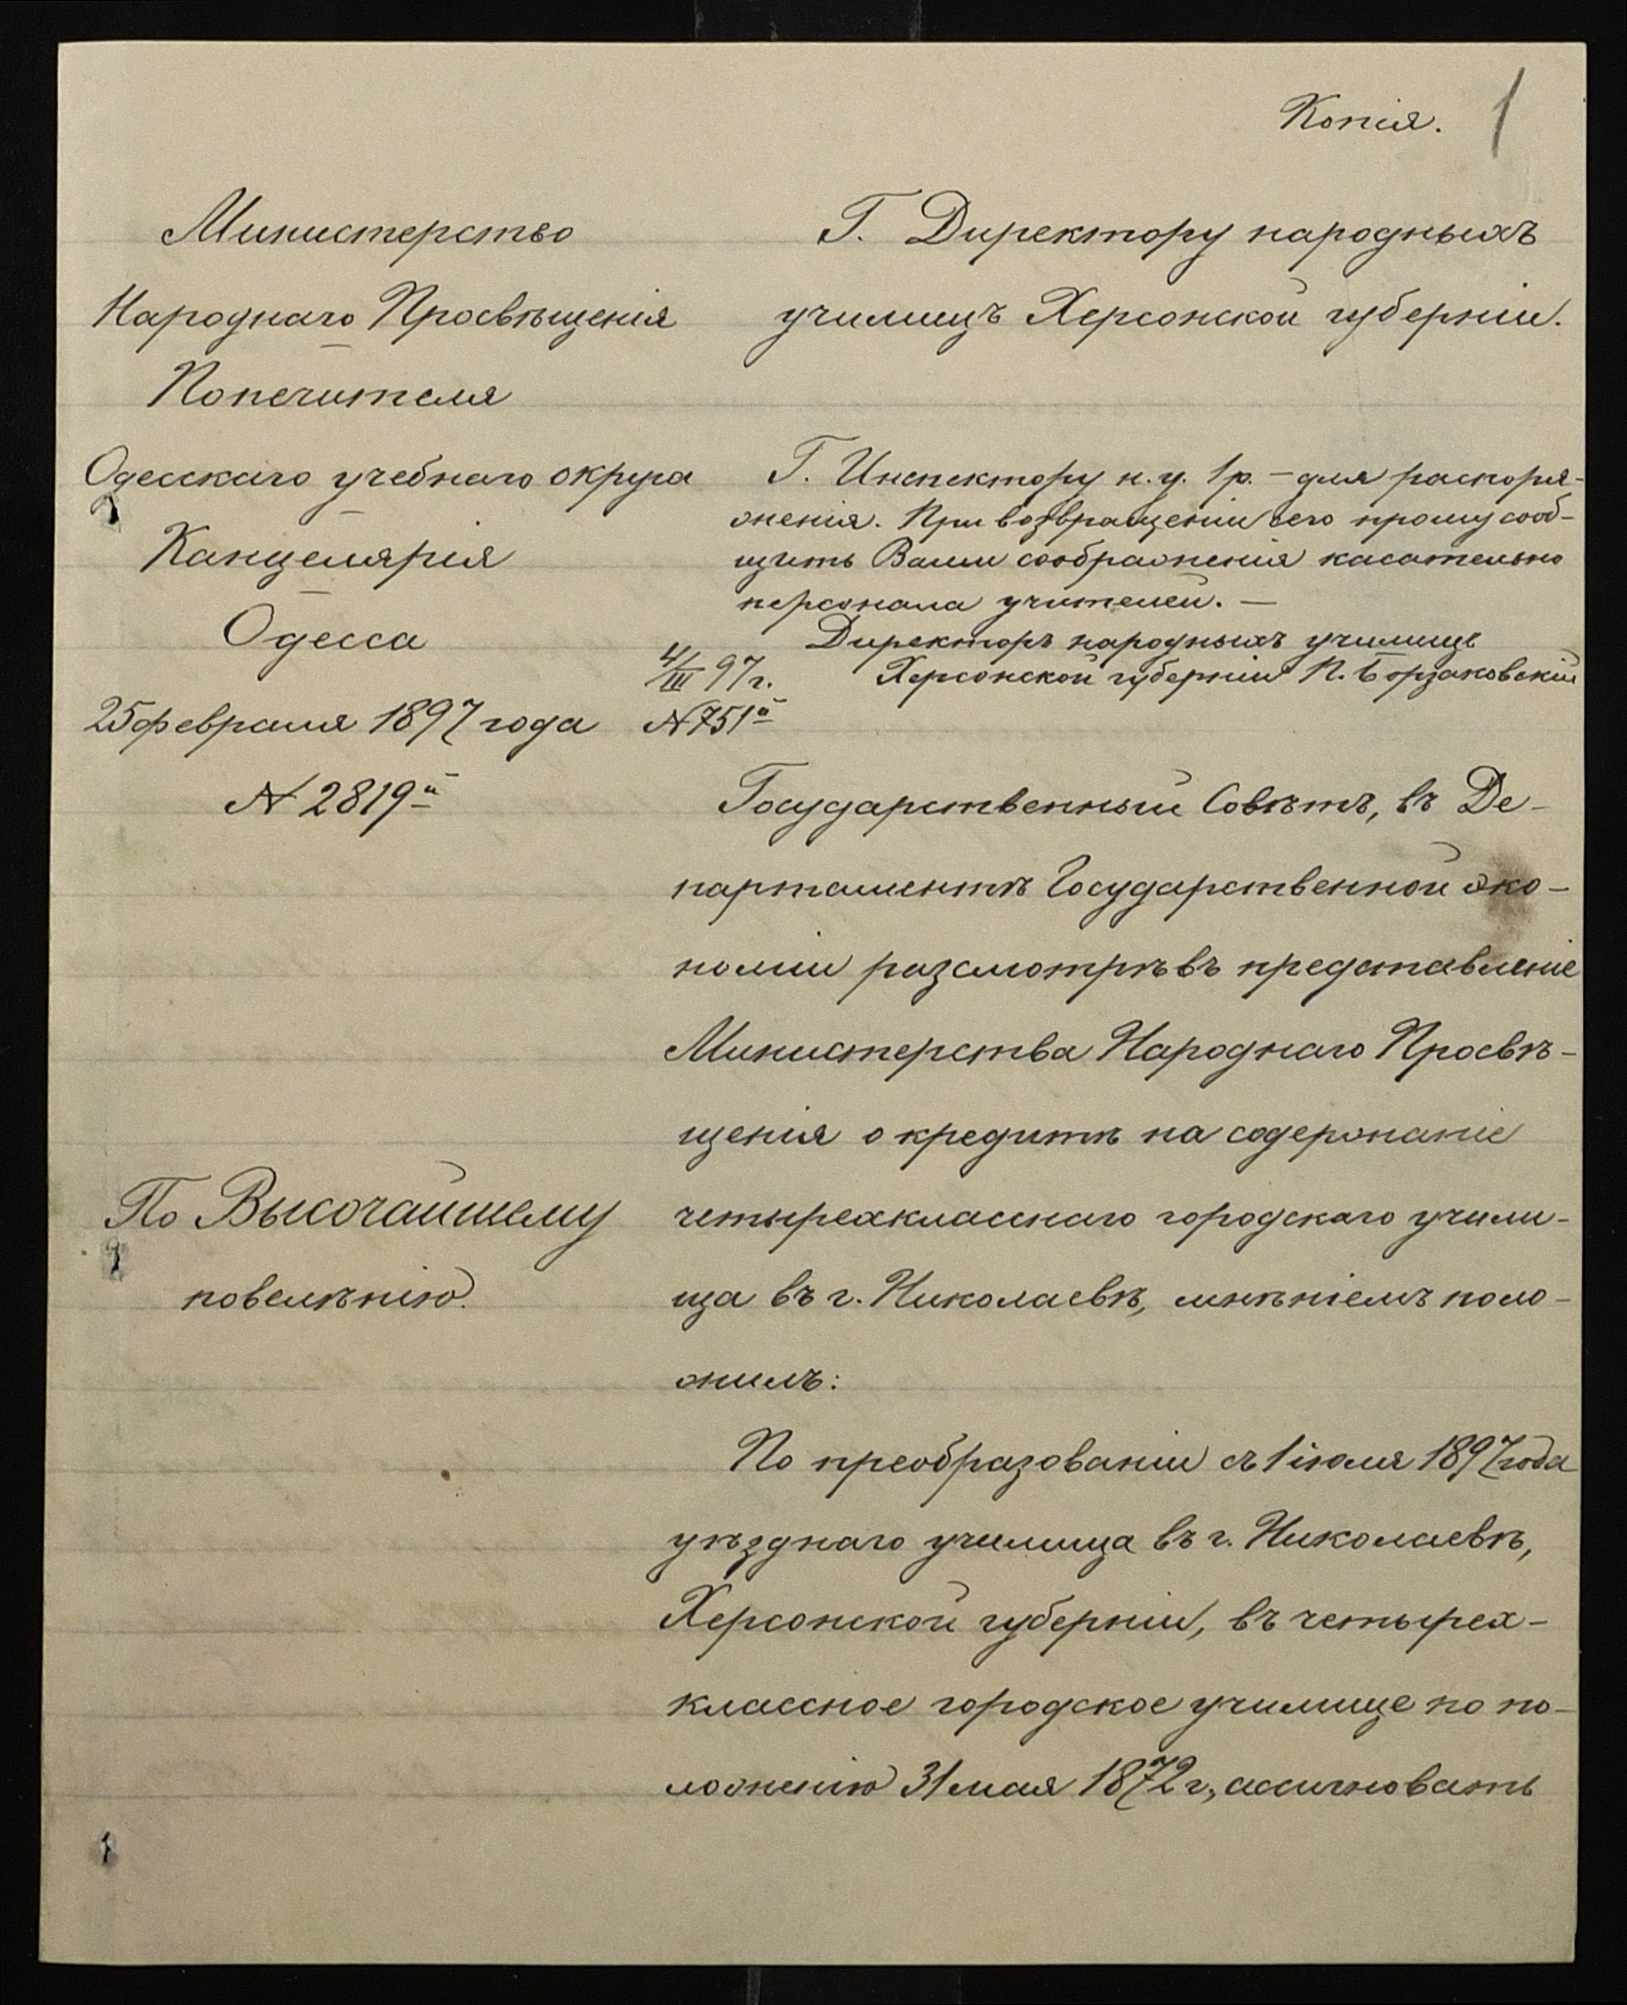 Копія. 1
Министерство
Народнаго Просвѣщенія
Попечителя
Одесскаго учебнаго округа
Канцелярія
Одесса
25 февраля 1897 года
№ 2819й
По Высочайшему
повелѣнію.
Г. Директору народныхъ
училищъ Херсонской губерніи.
Г. Инспектору н. у. 1 р. – для распоря-
женія. При возвращеніи сего прошу сооб-
щить Ваши соображенія касательно
персонала учителей. —
Директоръ народныхъ училищъ
Херсонской губерніи П. Борзаковскій
4/III 97 г.
№ 751й
Государственный Совѣтъ, въ Де-
партаментѣ Государственной эко-
номіи разсмотрѣвъ представленіе
Министерства Народнаго Просвѣ-
щенія о кредитѣ на содержаніе
четырехкласснаго городскаго учили-
ща въ г. Николаевѣ, мнѣніемъ поло-
жилъ:
По преобразованіи съ 1 іюля 1897 года
уѣзднаго училища въ г. Николаевѣ,
Херсонской губерніи, въ четырех-
классное городское училище по по-
ложенію 31 мая 1872 г., ассигновать